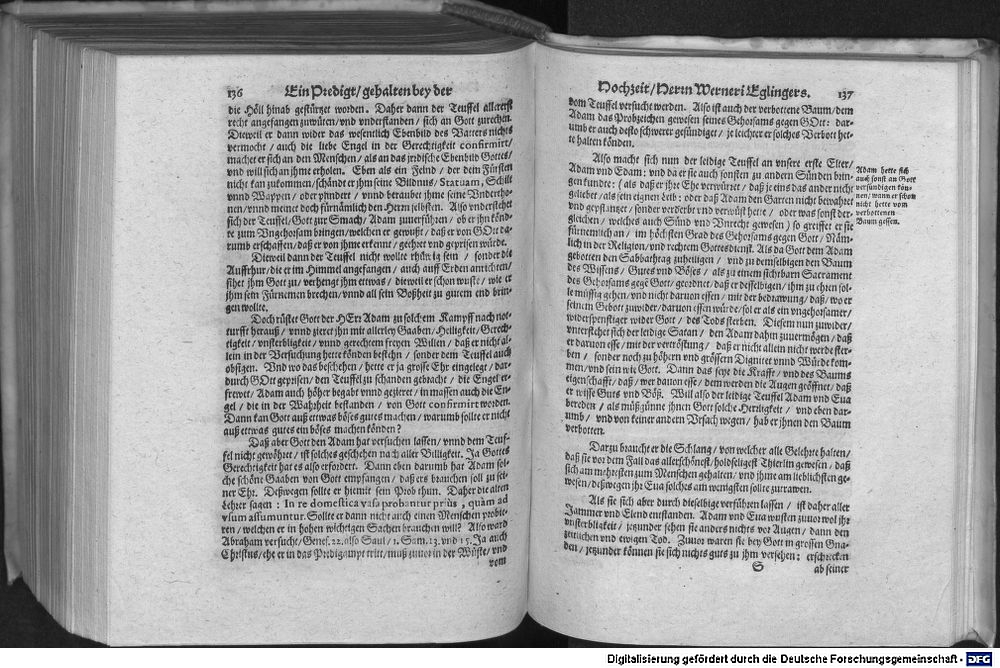 136 Ein Predigt/ gehalten bey der
die Höll hinab gestürtzet worden. Daher dann der Teuffel allererst
recht angefangen zuwüten/ vnd vnderstanden/ sich an Gott zurechen.
Dieweil er dann wider das wesentlich Ebenbild des Vatters nichts
vermocht/ auch die liebe Engel in der Gerechtigkeit confirmirt/
machet er sich an den Menschen/ als an das jrdische Ebenbild Gottes/
vnd will sich an jhme erholen. Eben als ein Feind/ der dem Fürsten
nicht kan zukommen/ schändt er jhm seine Bildnuß/ Statuam, Schilt
vnnd Wappen/ oder plündert/ vnnd beraubet jhme seine Vndertho-
nen/ vnnd meinet doch fürnämlich den Herrn selbsten. Also vnderstehet
sich der Teuffel/ Gott zur Smach/ Adam zuverführen/ ob er jhn könd-
te zum Vngehorsam bringen/ welchen er gewußt/ daß er von GOtt da-
rumb erschaffen/ daß er von jhme erkennt/ geehret vnd geprisen würde.
Dieweil dann der Teuffel nicht wollte rhüwig sein/ sonder die
Auffrhur/ die er im Himmel angefangen/ auch auff Erden anrichten/
sihet jhm Gott zu/ verhengt jhm etwas/ dieweil er schon wuste/ wie er
jhm sein Fürnemen brechen/ vnnd all sein Boßheit zu gutem end brin-
gen wollte.
Doch rüstet Gott der HErr Adam zu solchem Kampff nach not-
turfft herauß/ vnnd zieret jhn mit allerley Gaaben/ Heiligkeit/ Gerech-
tigkeit/ vnsterbligkeit/ vnnd gerechtem freyen Willen/ daß er nicht al-
lein in der Versuchung hette können bestehn/ sonder dem Teuffel auch
obsigen. Vnd wo das beschehen/ hette er ja grosse Ehr eingelegt/ dar-
durch GOtt geprisen/ den Teuffel zu schanden gebracht/ die Engel er-
frewet/ Adam auch höher begabt vnnd gezieret/ in massen auch die En-
gel/ die in der Wahrheit bestanden/ von Gott confirmirt worden.
Dann kan Gott auß etwas böses gutes machen/ warumb sollte er nicht
auß etwas gutes ein böses machen können?
Daß aber Gott den Adam hat versuchen lassen/ vnnd dem Teuf-
fel nicht gewöhret/ ist solches geschehen nach aller Billigkeit. Ja Gottes
Gerechtigkeit hat es also erfordert. Dann eben darumb hat Adam sol-
che schöne Gaaben von Gott empfangen/ daß ers brauchen soll zu sei-
ner Ehr. Deßwegen sollte er hiemit sein Prob thun. Daher die alten
Lehrer sagen: In re domestica vasa probantur priùs, quàm ad
vsum assumuntur. Sollte er dann nicht auch einen Menschen probie-
ren/ welchen er in hohen wichtigen Sachen brauchen will? Also ward
Abraham versucht/ Genes. 22. also Saul/ 1. Sam. 13. vnd 15. Ja auch
Christus/ ehe er in das Predigampt tritt/ muß zuvor in der Wüste/ vnd
vom
Hochzeit/ Herrn Werneri Eglingers. 137
vom Teuffel versucht werden. Also ist auch der verbottene Baum/ dem
Adam das Probzeichen gewesen seines Gehorsams gegen GOtt: dar-
umb er auch desto schwerer gesündiget/ je leichter er solches Verbott het-
te halten könden.
Also macht sich nun der leidige Teuffel an vnsere erste Elter/
Adam vnd Eua: vnd da er sie auch sonsten zu andern Sünden brin-
gen kundte: (als daß er jhr Ehe verwürret/ daß je eins das ander nicht
geliebet/ als sein eignen leib: oder daß Adam den Garten nicht bewahret
vnd gepflantzet/ sonder verderbt vnd verwüst hette/ oder was sonst der-
gleichen/ welches auch Sünd vnd Vnrecht gewesen) so greiffet er sie
fürnemlich an/ im höchsten Grad des Gehorsams gegen Gott/ Näm-
lich in der Religion/ vnd rechtem Gottesdienst. Als da Gott dem Adam
gebotten den Sabbathtag zuheiligen/ vnd zu demselbigen den Baum
des Wissens/ Gutes vnd Böses/ als zu einem sichtbarn Sacrament
des Gehorsams gegē Gott/ geordnet/ daß er desselbigen/ ihm zu ehren sol-
le müssig gehen/ vnd nicht daruon essen/ mit der bedrawung/ daß/ wo er
seinem Gebott zuwider/ daruon essen würde/ sol er als ein vngehorsamer/
widerspenstiger wider Gott/ des Tods sterben. Diesem nun zuwider/
vnterstehet sich der leidige Satan/ den Adam dahin zuvermögen/ daß
er daruon esse/ mit der vertröstung/ daß er nicht allein nicht werde ster-
ben/ sonder noch zu höhern vnd grössern Dignitet vnnd Würde kom-
men/ vnd sein wie Gott. Dann das seye die Krafft/ vnd des Baums
eigenschafft/ daß/ wer dauon esse/ dem werden die Augen geöffnet/ daß
er wisse Guts vnd Böß. Will also der leidige Teuffel Adam vnd Eua
bereden/ als mißgünne jhnen Gott solche Herrligkeit/ vnd eben dar-
umb/ vnd von keiner andern Vrsach wegen/ hab er jhnen den Baum
verbotten.
Darzu braucht er die Schlang/ von welcher alle Gelehrte halten/
daß sie vor dem Fall das allerschönest/ holdseligest Thierlin gewesen/ daß
sich am mehresten zum Menschen gehalten/ vnd jhme am lieblichsten ge-
wesen/ deßwegen jhr Eua solches am wenigsten sollte zutrawen.
Als sie sich aber durch dieselbige verführen lassen/ ist daher aller
Jammer vnd Elend entstanden. Adam vnd Eua wusten zuvor wol jhr
vnsterbligkeit/ jezunder sehen sie anders nichts vor Augen/ dann den
zeitlichen vnd ewigen Tod. Zuvor waren sie bey Gott in grossen Gna-
den/ jezunder können sie sich nichts guts zu jhm versehen: erschrecken
S ab seiner
Adam hette sich
auch sonst an Gott
versündigen kön-
nen/ wann er schon
nicht hette vom
verbottenen
Baum gessen.
Digitalisierung gefördert durch die Deutsche Forschungsgemeinschaft - DFG